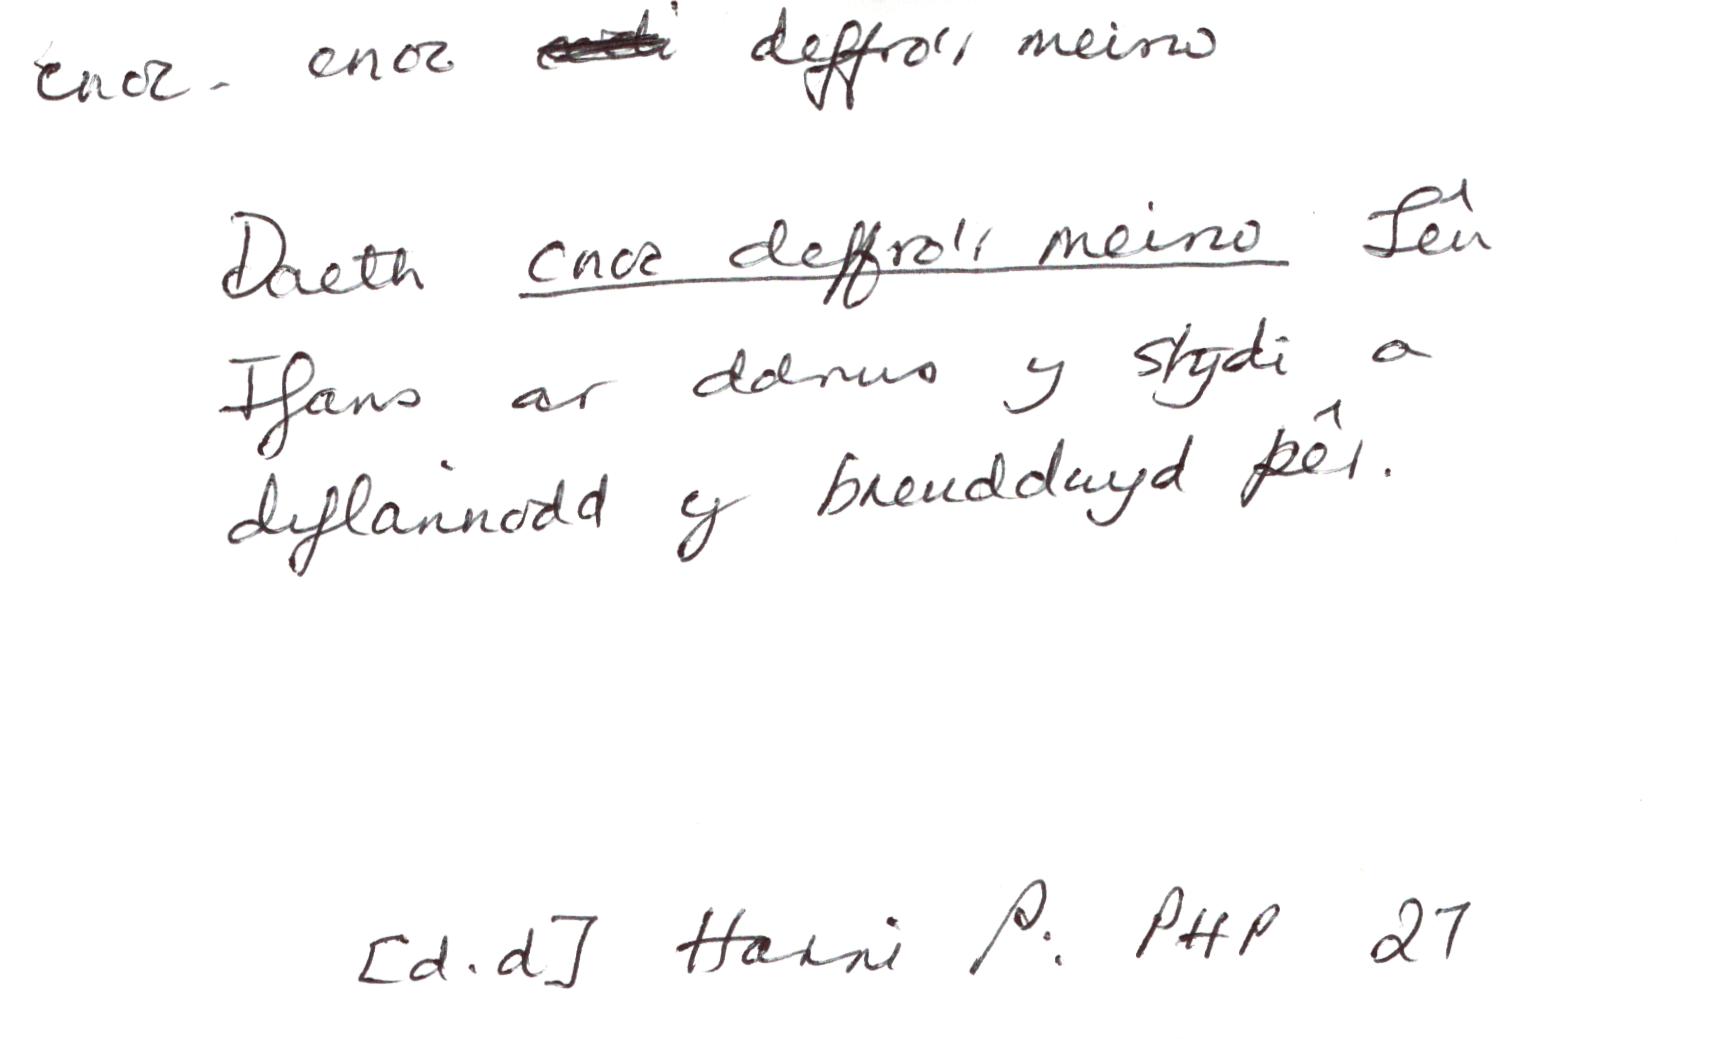 cnoc - cnoc deffro'r meirw
Daeth cnoc deffro'r meirw Siân
Ifans ar ddrws y stydi a
dyflannodd y breuddwyd pêr.
[d.d] Harri P. PHP 27